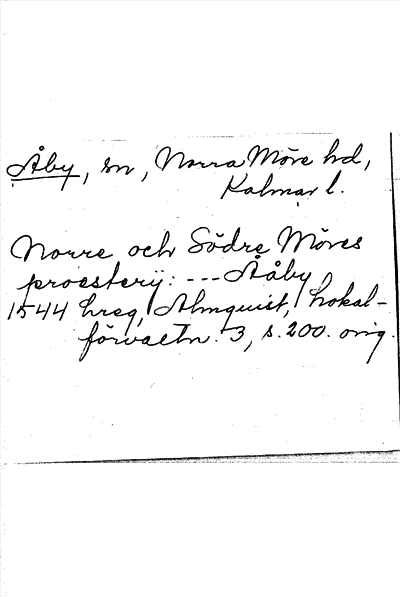 Åby, sn, Norra Möre hd,
Kalmar l.
Norre och Södre Möres
proestery: --- Ååby
1544 hreg, Almquist, Lokal-
förvaltn. 3, s. 200. orig.